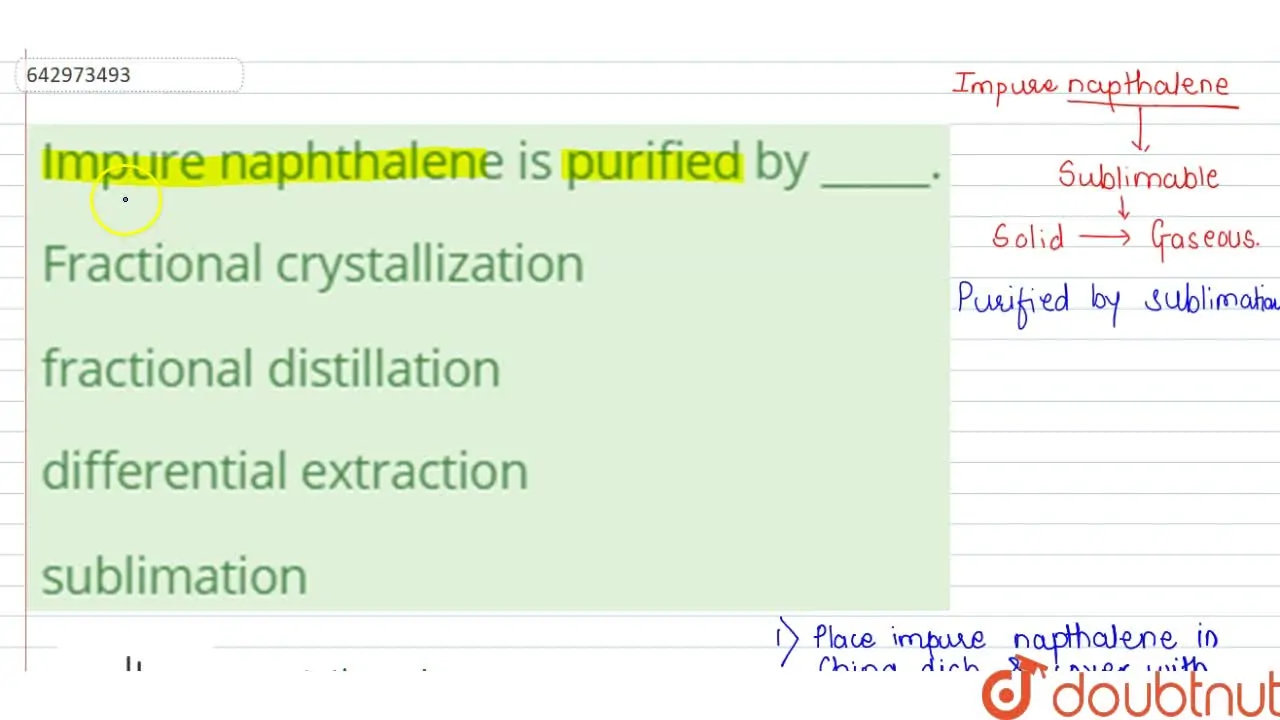 642973493
Impure naphthalene is purified by _____.
Fractional crystallization
fractional distillation
differential extraction
sublimation
Impure napthalene
Sublimable
Solid → Gaseous.
Purified by sublimation
1) Place impure napthalene in
China dish & cover with
doubtnut